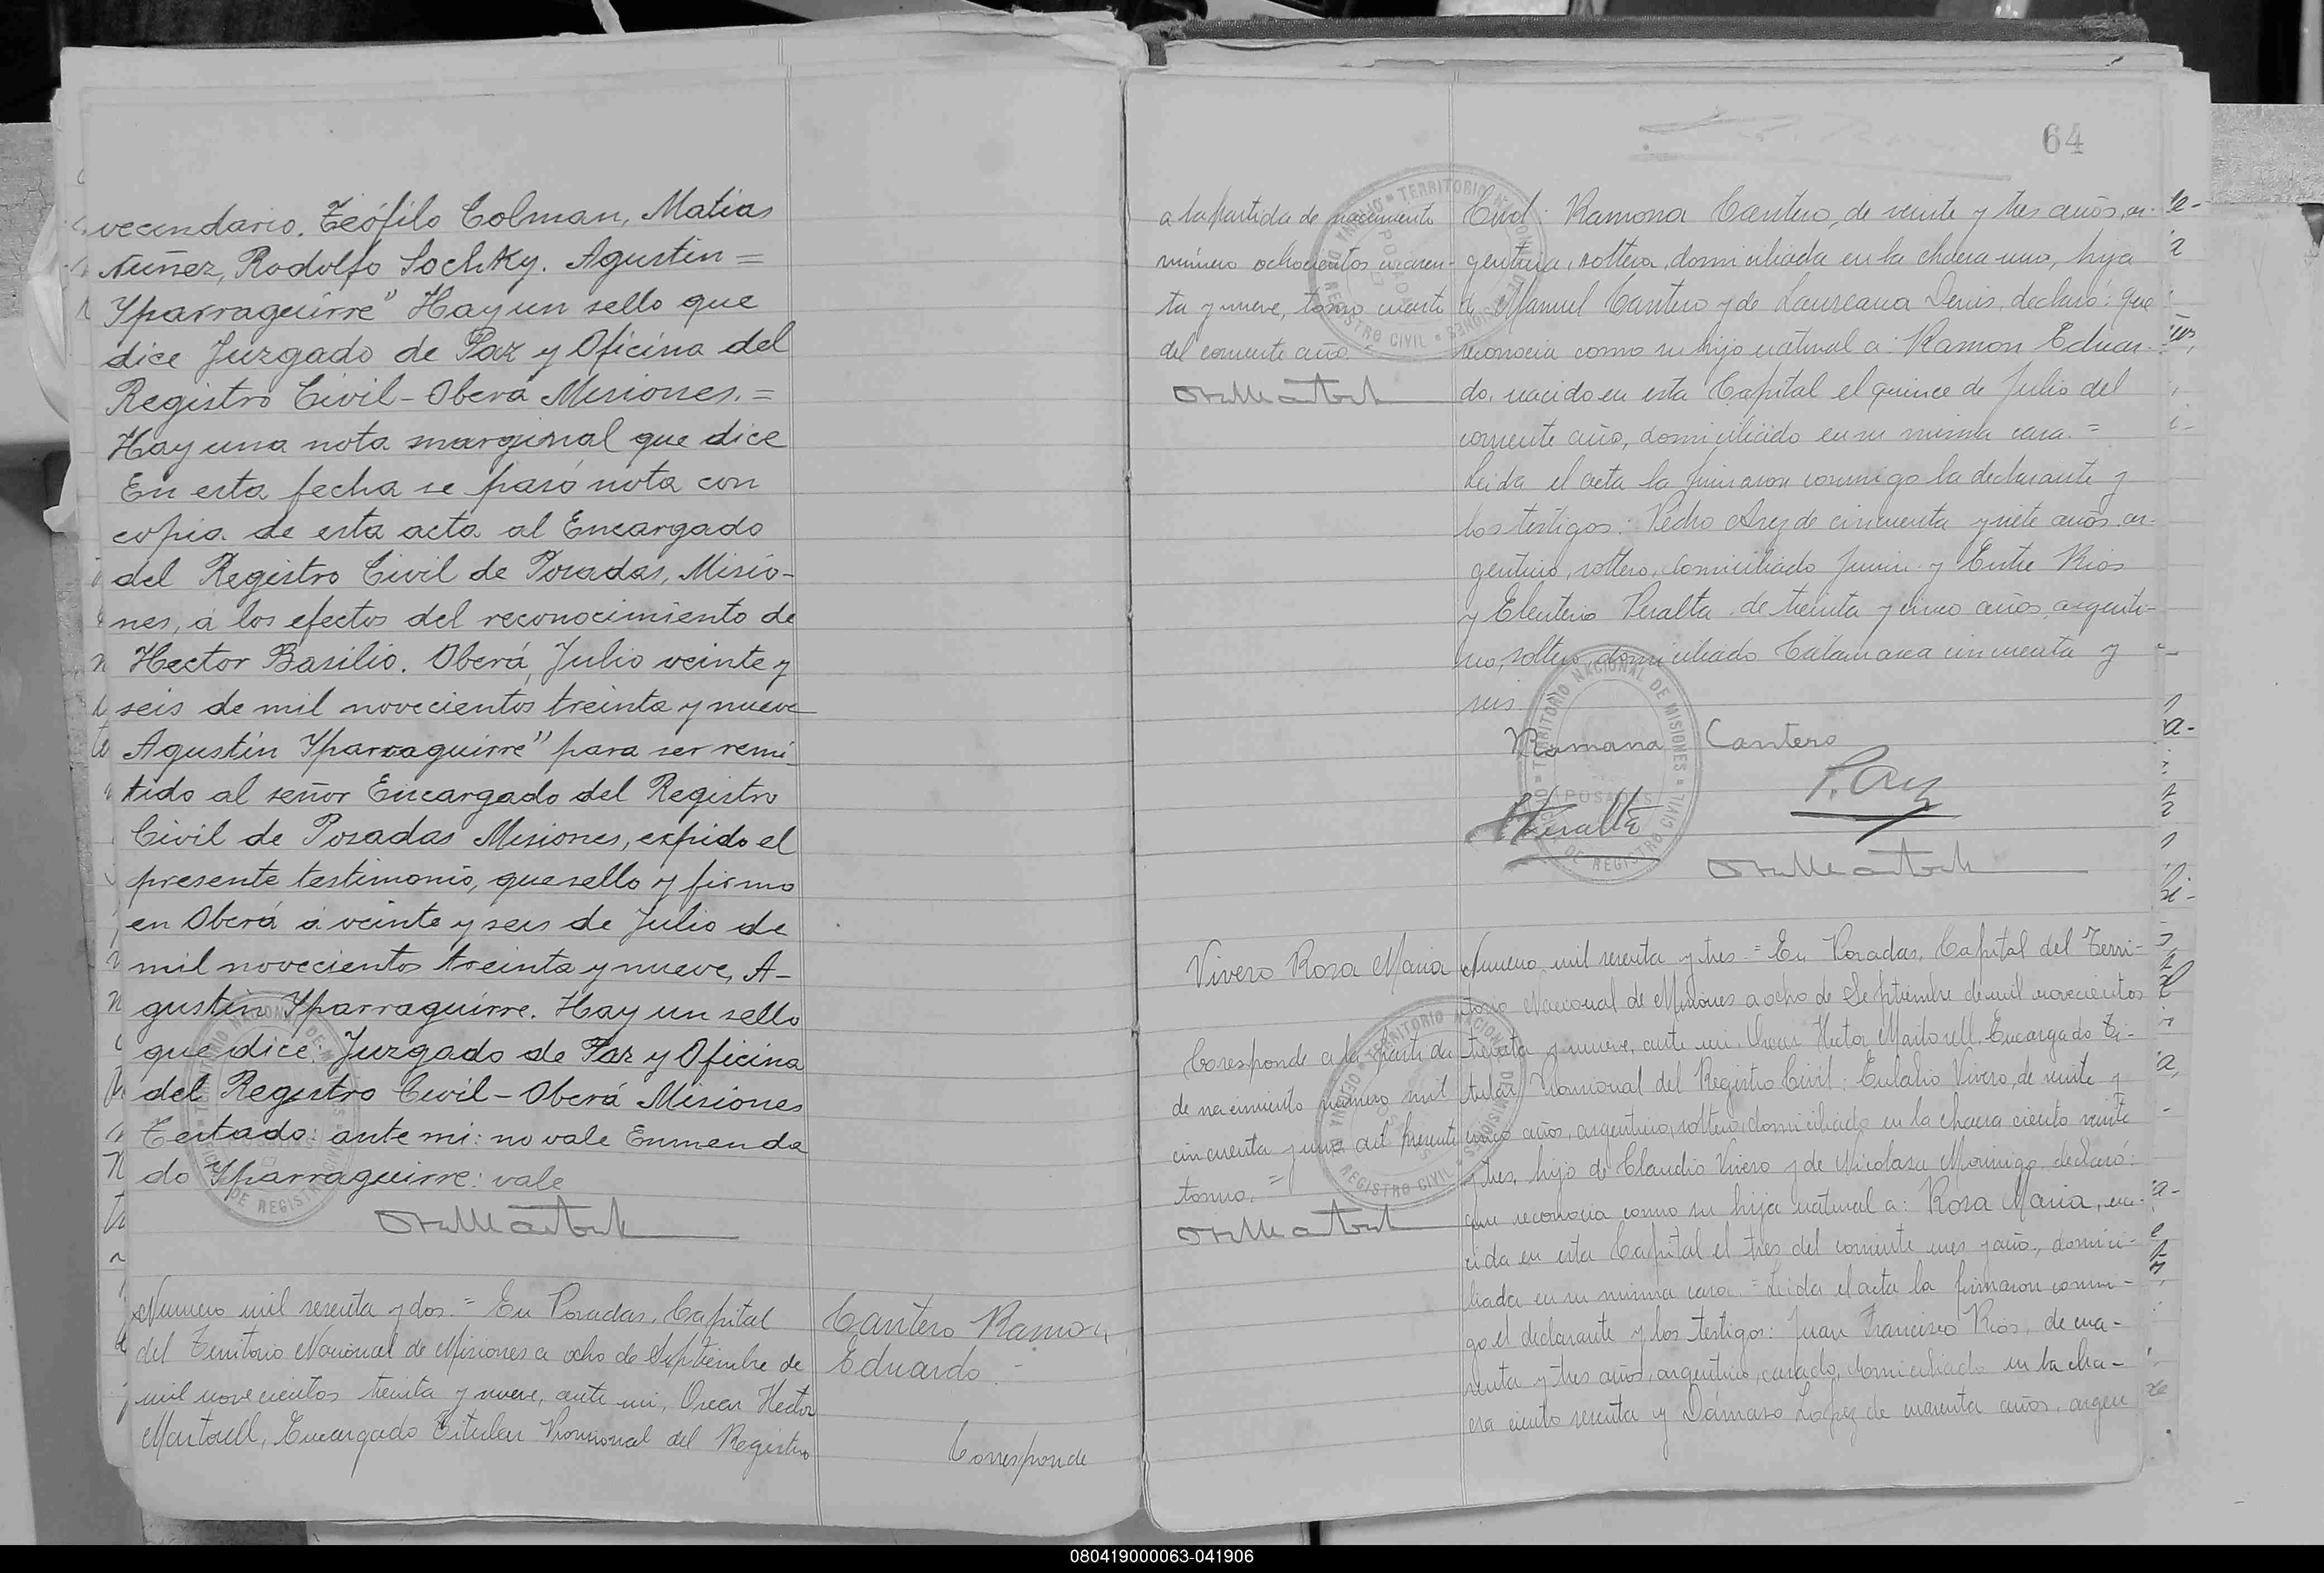 vecindario. Teófilo Colman, Matias
Nuñez, Rodolfo Sochky. Agustin =
Yparraguirre" Hay un sello que
dice Juzgado de Paz y Oficina del
Registro Civil - Oberá Misiones. =
Hay una nota marginal que dice
En esta fecha se pasó nota con
copia de esta acta al Encargado
del Registro Civil de Posadas, Misio-
nes, á los efectos del reconocimiento de
Hector Basilio. Oberá, Julio veinte y
seis de mil novecientos treinta y nueve
Agustin Yparraguirre" para ser remi-
tido al señor Encargado del Registro
Civil de Posadas Misiones, expido el
presente testimonio, que sello y firmo
en Oberá á veinte y seis de Julio de
mil novecientos treinta y nueve, A-
gustin Yparraguirre. Hay un sello
que dice: Juzgado de Paz y Oficina
del Registro Civil - Oberá Misiones
Testado: ante mi: no vale Enmenda
do Yparraguirre: vale
Numero mil sesenta y dos. = En Posadas, Capital
del Territorio Nacional de Misiones a ocho de Septiembre de
mil novecientos treinta y nueve, ante mi, Oscar Hector
Martorell, Encargado Titular Provisional del Registro
Cantero Ramon
Eduardo. -
Corresponde
64
a la partida de nacimiento
número ochocientos cuaren-
ta y nueve, tomo cuarto
del corriente año. =
Civil: Ramona Cantero, de veinte y tres años, ar-
gentina, soltera, domiciliada en la chacra uno, hija
de Manuel Cantero y de Laureana Denis, declaró: que
reconocia como su hijo natural a: Ramon Eduar-
do, nacido en esta Capital el quince de Julio del
corriente año, domiciliado en su misma casa. =
Leida el acta la firmaron conmigo la declarante y
los testigos: Pedro Arez de cincuenta y siete años, ar-
gentino, soltero, domiciliado Junin y Entre Rios
y Eleuterio Peralta de treinta y cinco años, argenti-
no, soltero, domiciliado Catamarca cincuenta y
seis
Ramona Cantero
P. Arez
EPeralta
Vivero Rosa Maria
Corresponde a la partida
de nacimiento número mil
cincuenta y uno del presente
tomo. =
Numero mil sesenta y tres. = En Posadas, Capital del Terri-
torio Nacional de Misiones a ocho de Septiembre de mil novecientos
treinta y nueve, ante mi, Oscar Hector Martorell, Encargado Ti-
tular Provisional del Registro Civil: Eulalio Vivero, de veinte y
cinco años, argentino, soltero, domiciliado en la chacra ciento veinte
y tres, hijo de Claudio Vivero y de Nicolasa Morinigo, declaró:
que reconocia como su hija natural a: Rosa Maria, na-
cida en esta Capital el tres del corriente mes y año, domici-
liada en su misma casa. = Leida el acta la firmaron conmi-
go el declarante y los testigos: Juan Francisco Rios, de cua-
renta y tres años, argentino, casado, domiciliado en la cha-
cra ciento sesenta y Dámaso Lopez de cuarenta años, argen
TERRITORIO NACIONAL DE MISIONES
OFICINA DE REGISTRO CIVIL
POSADAS
080419000063-041906